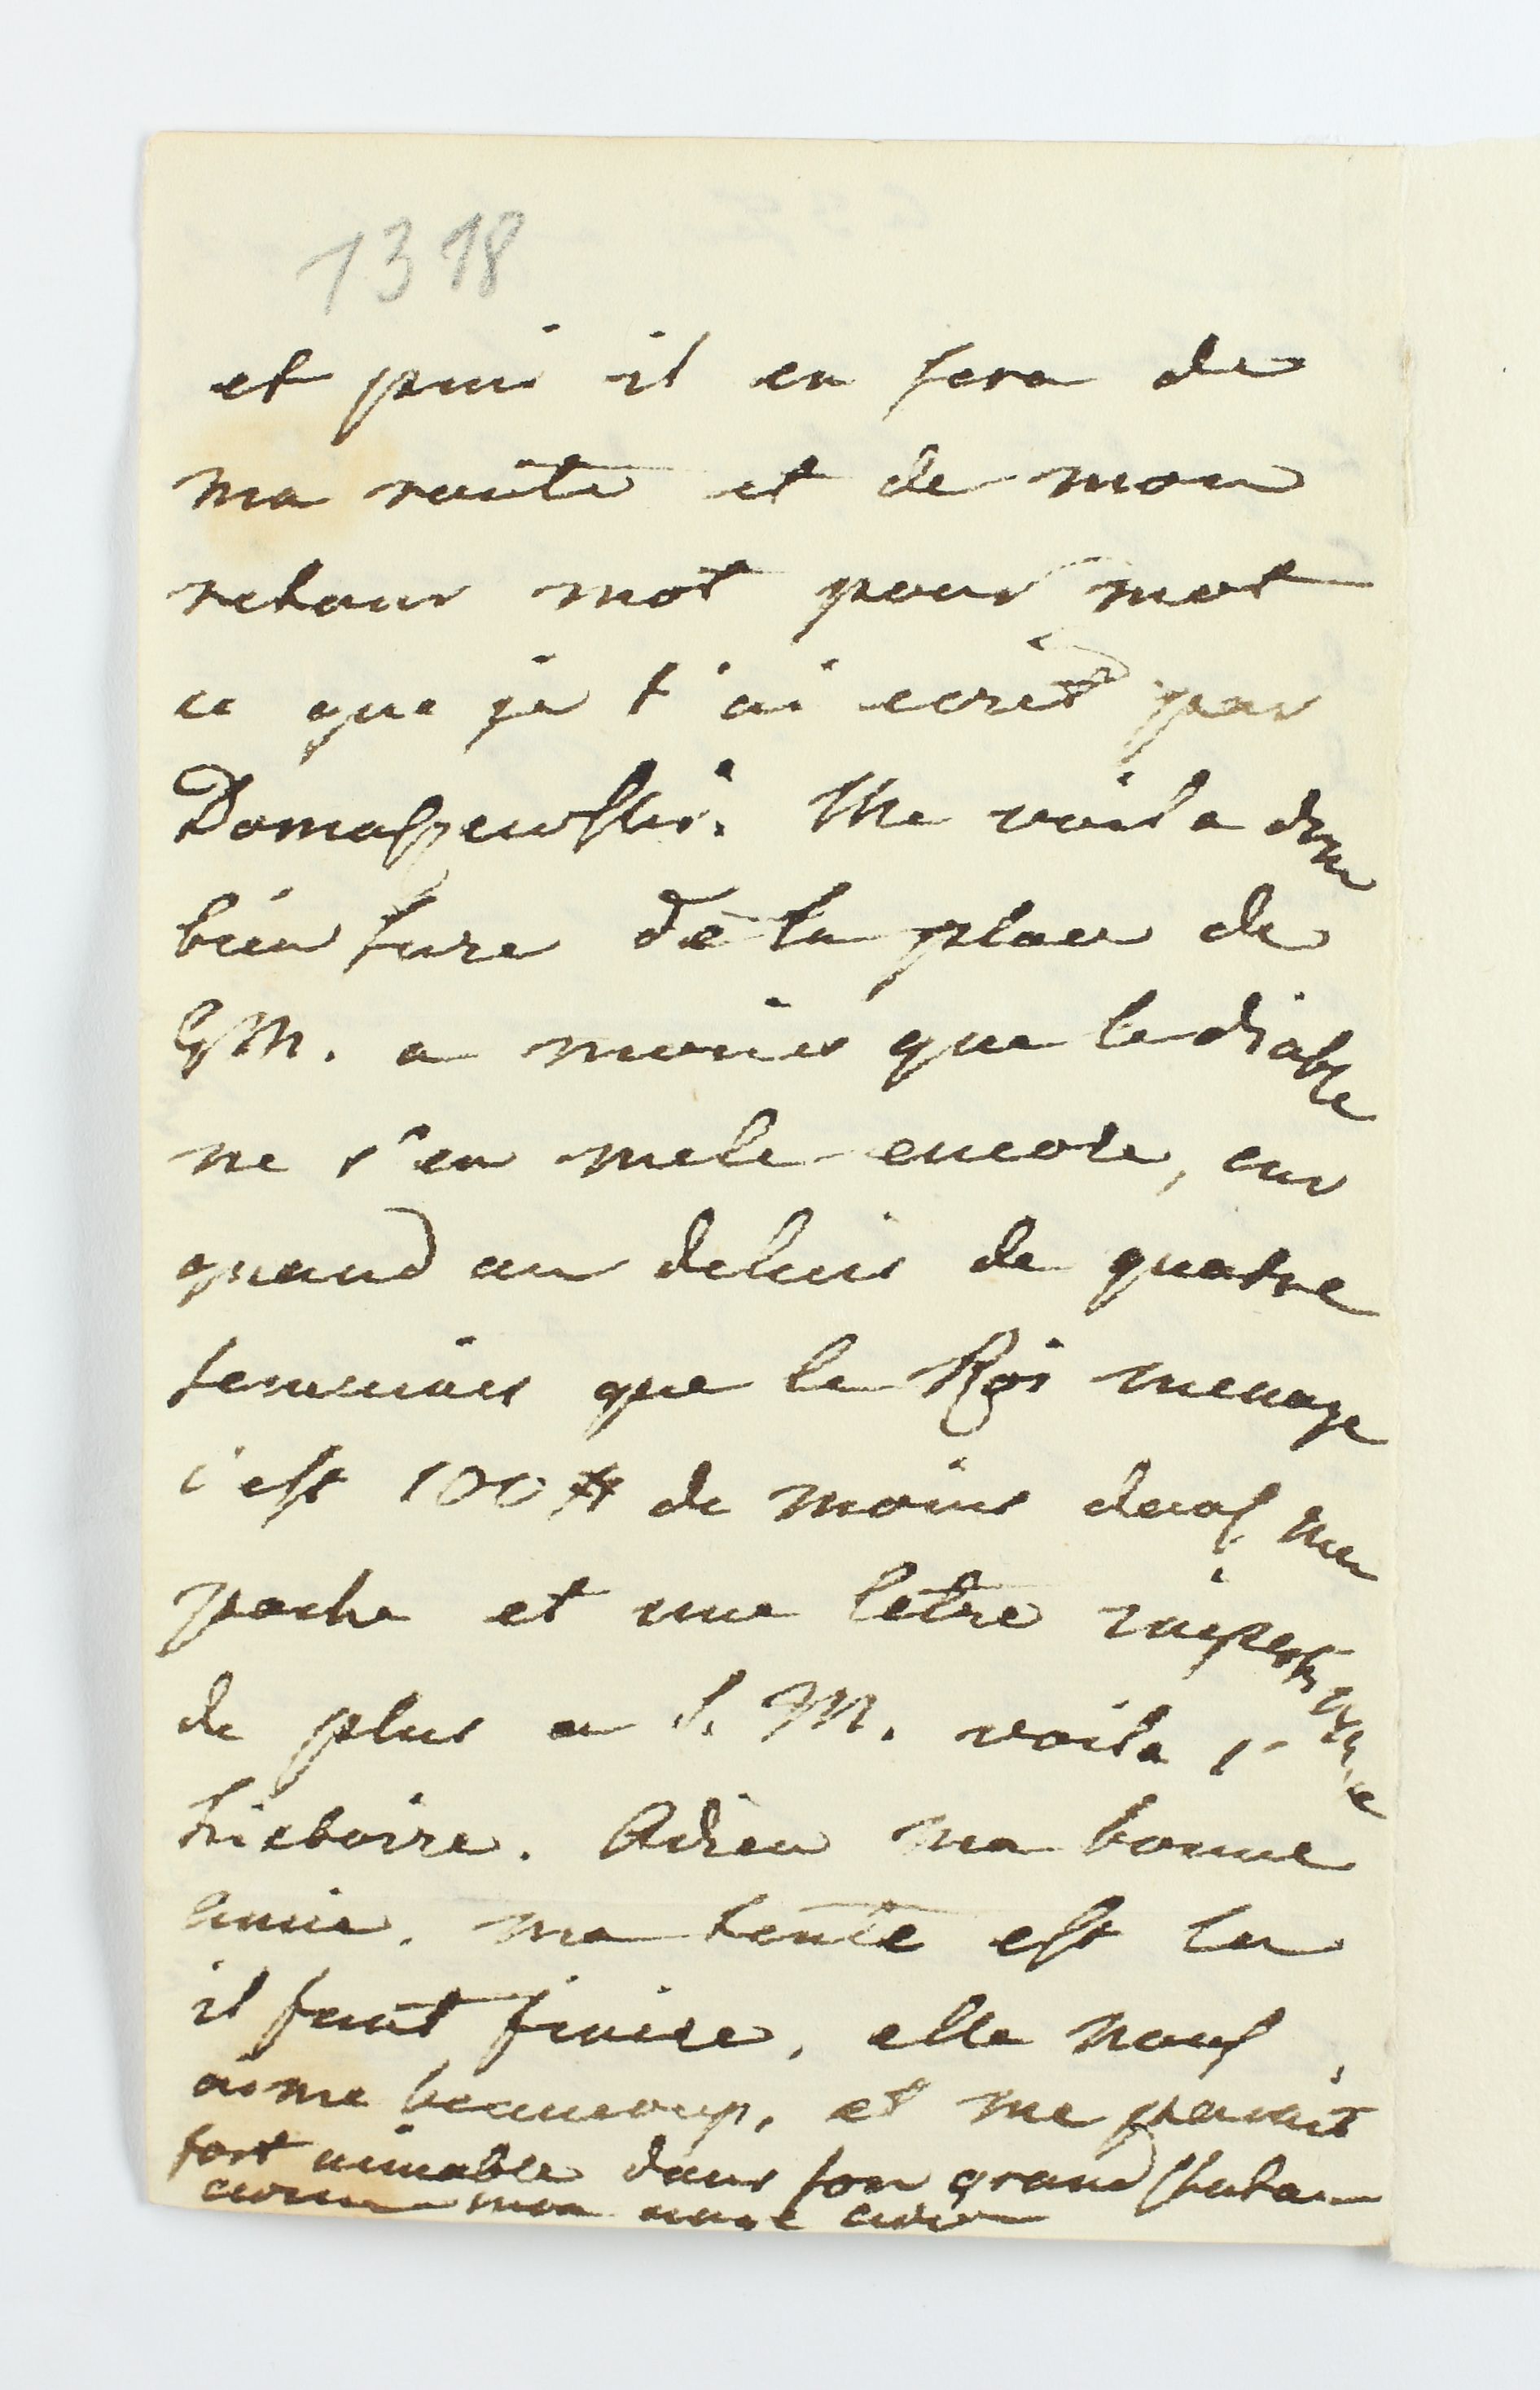 1318
et puis il en sera de
ma route et de mon
retour mot pour mot
ce que je t'ai ecrit par
Domaszewski. Me voila donc
bien sure de la place de
GM. a moins que le diable
ne s'en mele encore, car
quand au delais de quatre
semaines que le Roi menage
c'est 100 # de moins dans ma
poche et une letre impertinente
de plus a S. M. voila l'
histoire. Adieu ma bonne
amie. ma tente est la
il faut finire, elle nous
aime beaucoup, et me parait
fort aimable dans son grand chatau
adieu mon ange adieu